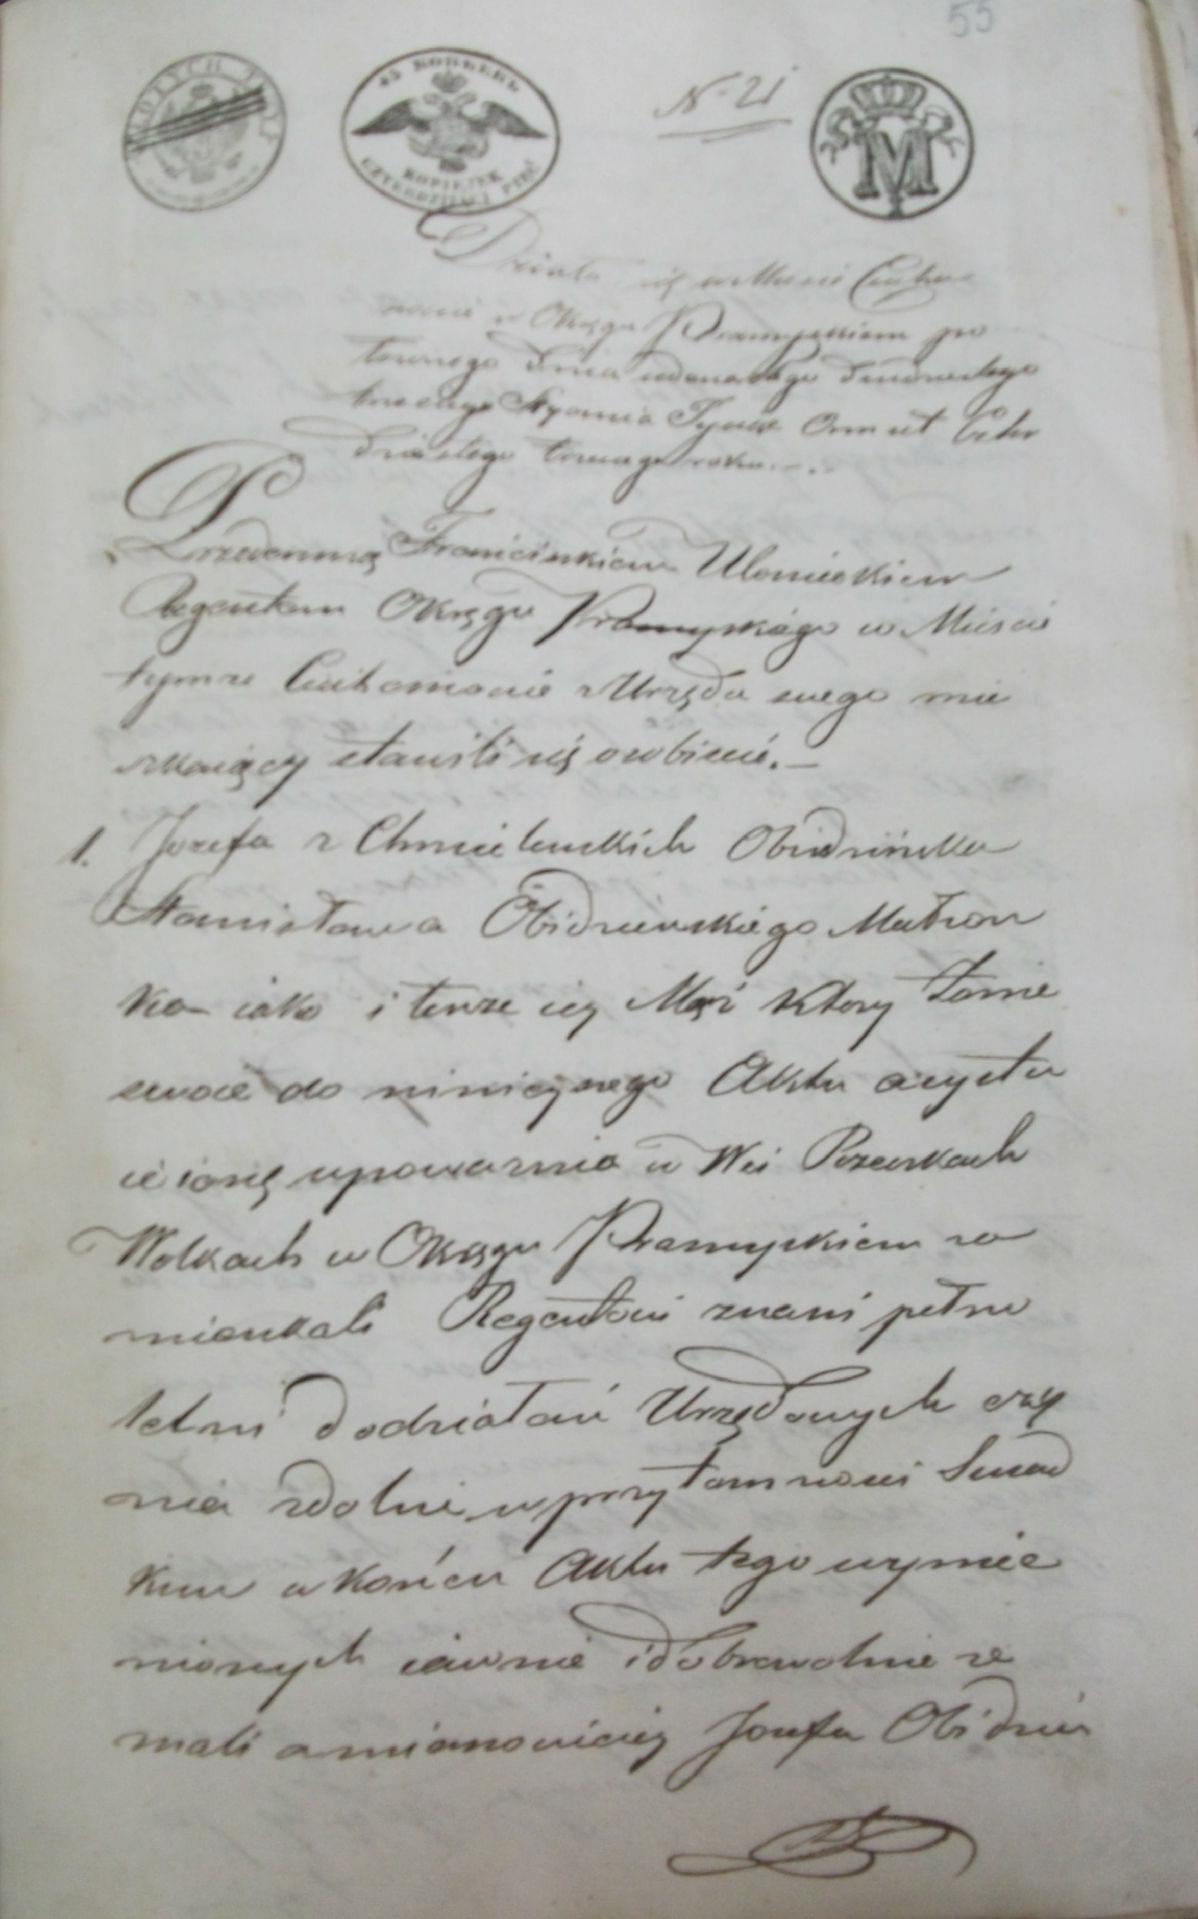 55
ZŁOTYCH TRZY
45 КОПѢЕКЪ
KOPIEIEK
CZTERDZIEŚCI PIĘĆ
N 21
M
Działo się w Mieście Ciecha
nowie w Okręgu Przasnyskiem po
łożonego dnia jedenastego dwudziestego
trzeciego Stycznia Tysiąc Ośmset Czter
dziestego trzeciego roku.
Przedemną Franciszkiem Ulanieckiem
Regentem Okręgu Przasnyskiego w Mieście
tymże Ciechanowie z Urzędu swego mie
szkaiący stawili się osobiście.
1. Jozefa z Chmielewskich Obidzińska
Stanisława Obidzinskiego Małżon
ka iako i tenże iey Mąż ktory żonie
swoie do ninieyszego Aktu assystu
ie ionę upoważnia w Wsi Pszczołkach
Wolkach w Okręgu Przasnyskiem za
mieszkali Regentowi znani pełno
letni do działań Urzędowych czy
nia zdolni, w przytomności Swiad
kow w końcu Aktu tego wymie
nionych iawnie i dobrowolnie ze
znali a mianowiciey Jozefa Obidziń